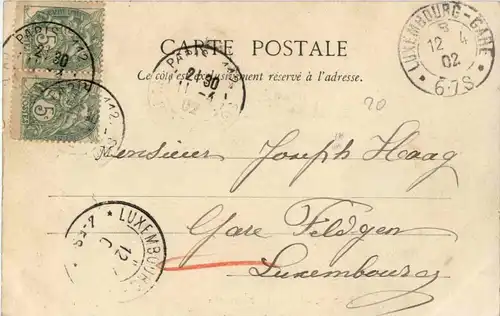 CARTE POSTALE
Ce côté est exclusivement réservé à l'adresse.
PARIS 112
2 30
5
5
PARIS 112
2 30
11 - 4
02
LUXEMBOURG-GARE
12 4
02
6-7S
20
Monsieur Joseph Haag
Gare Feldgen
Luxembourg
LUXEMBOURG
12